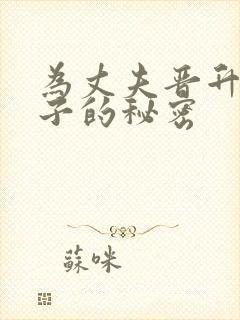 為丈夫晋升
子的秘密
蘇咪